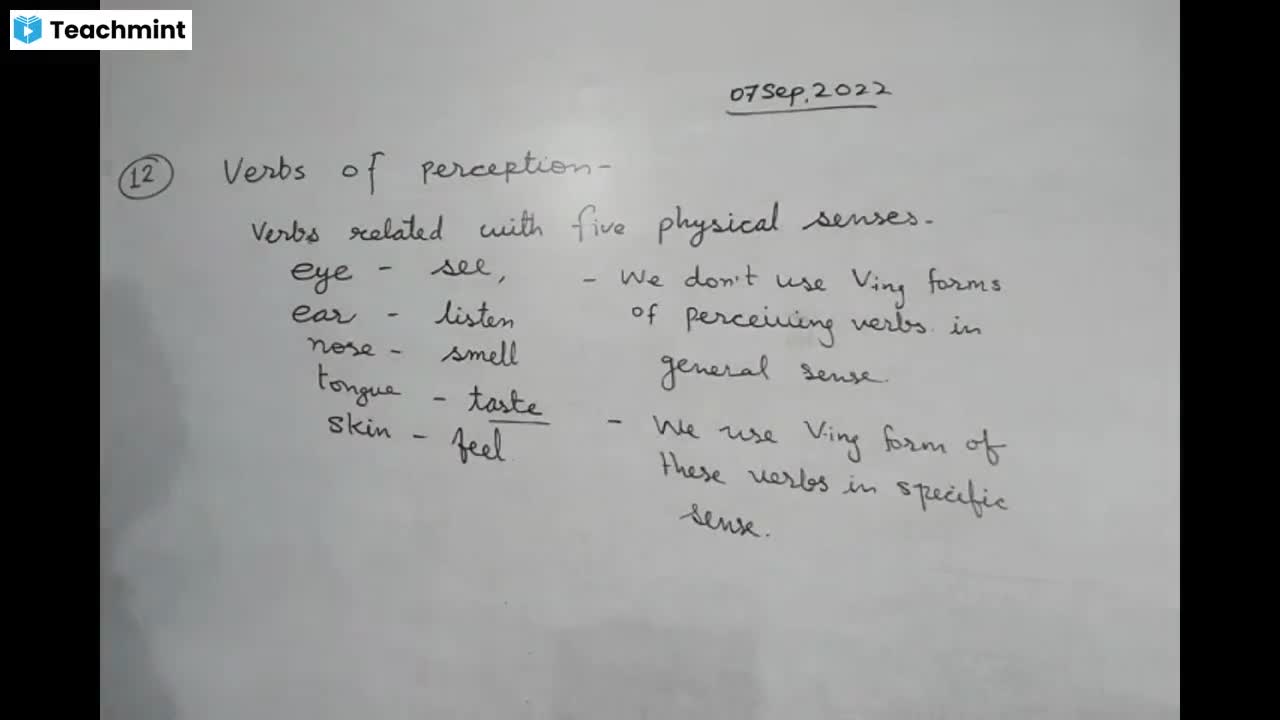 Teachmint
07 Sep, 2022
12 Verbs of perception-
Verbs related with five physical senses-
eye - see,
ear - listen
nose - smell
tongue - taste
skin - feel
- We don't use Ving forms
of perceiving verbs in
general sense.
- We use V-ing form of
these verbs in specific
sense.